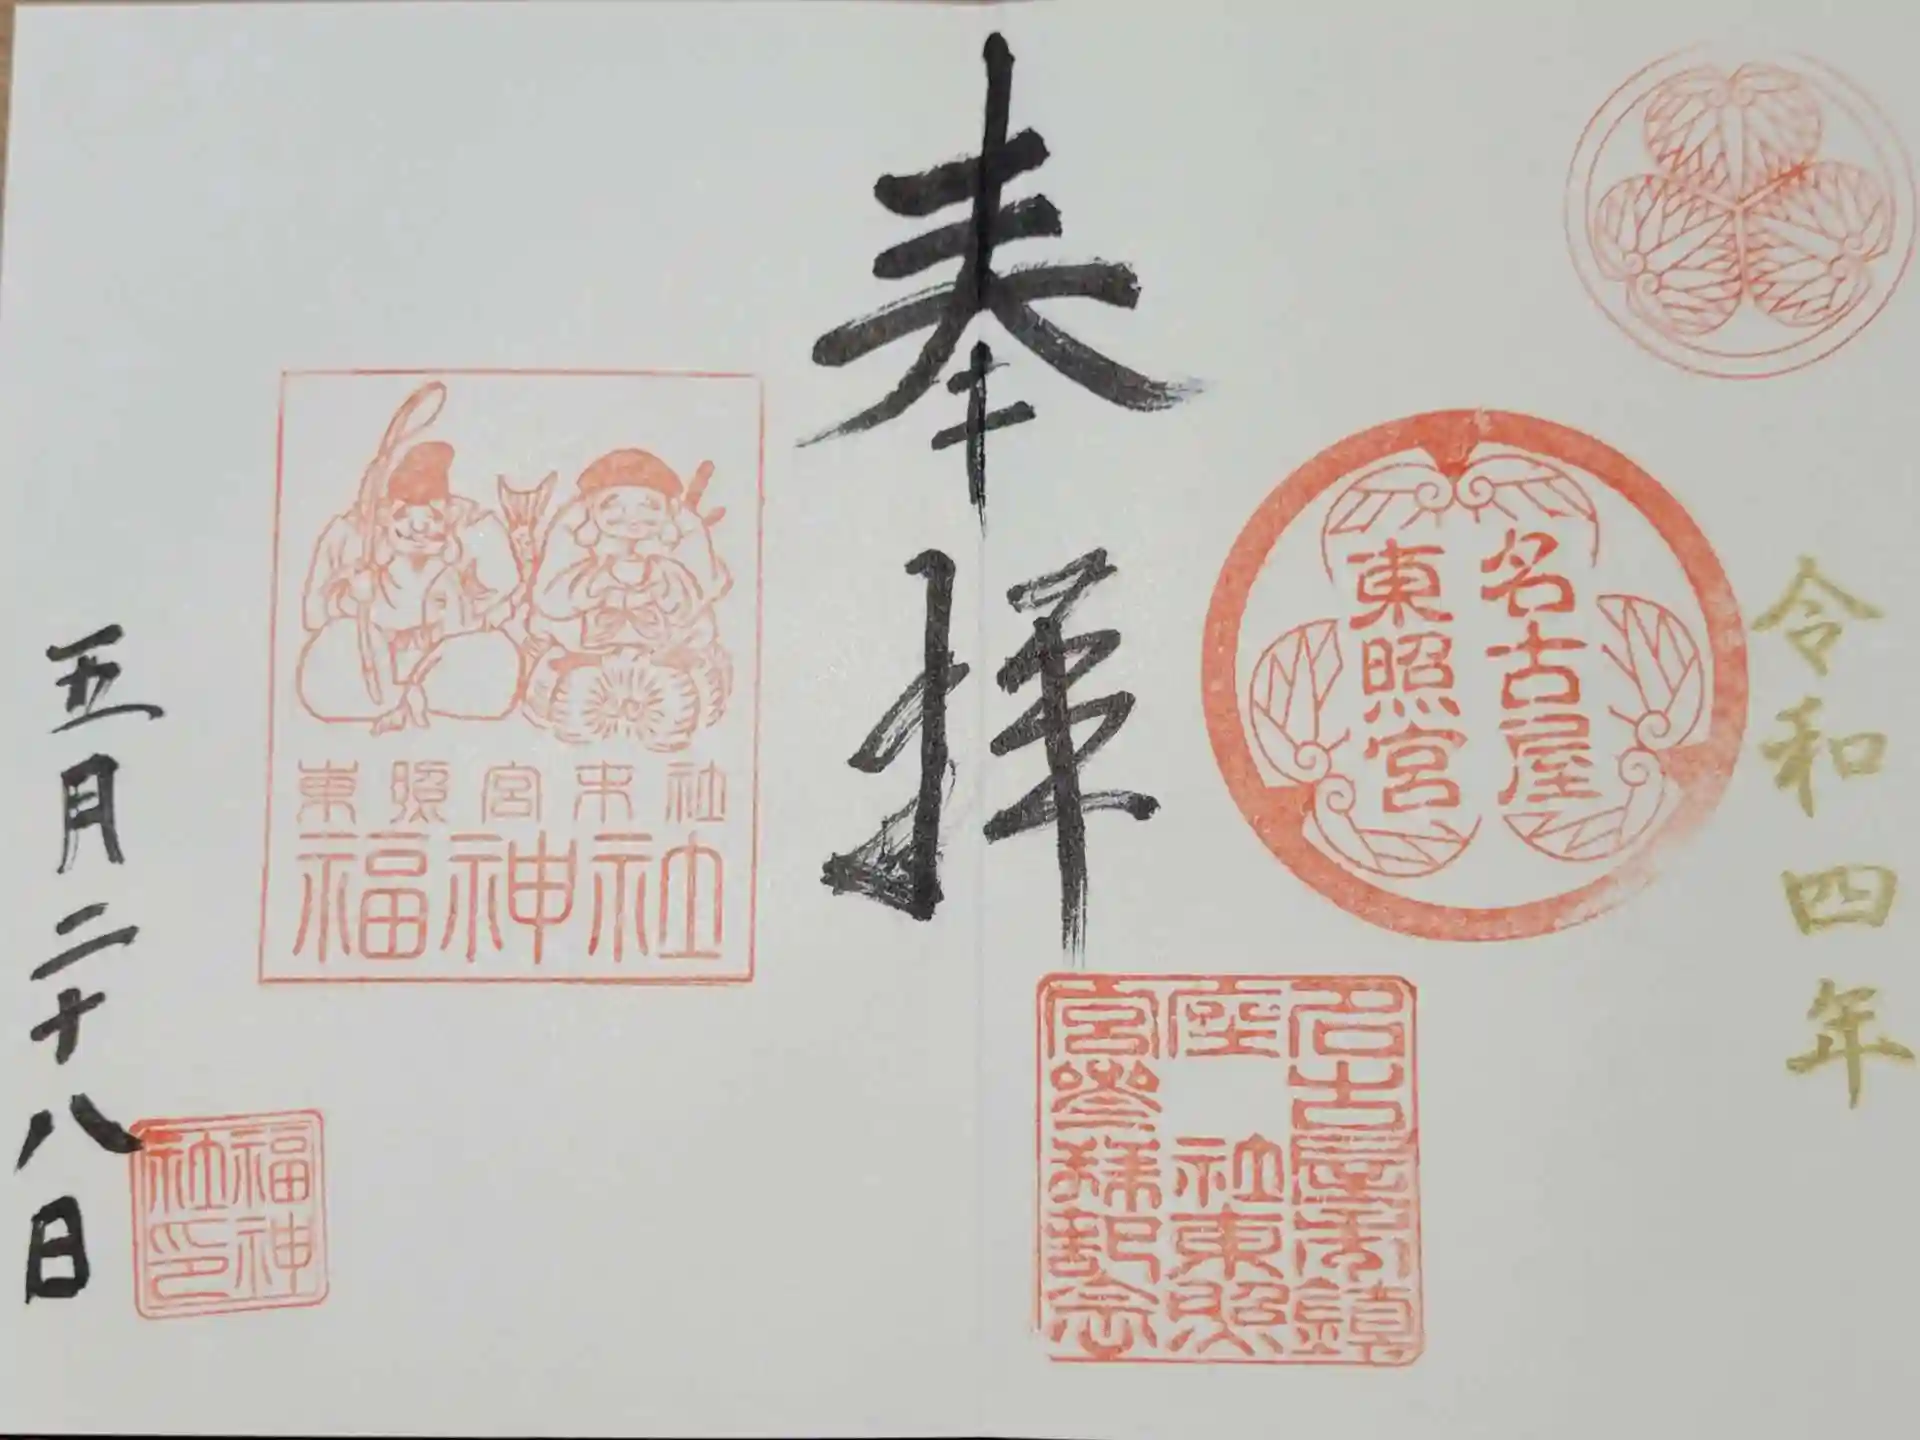 令和四年
名古屋
東照宮
名古屋
鎮
座
社東照
宮参拝記念
奉拝
東照宮末社
福神社
五月二十八日
福神
社印